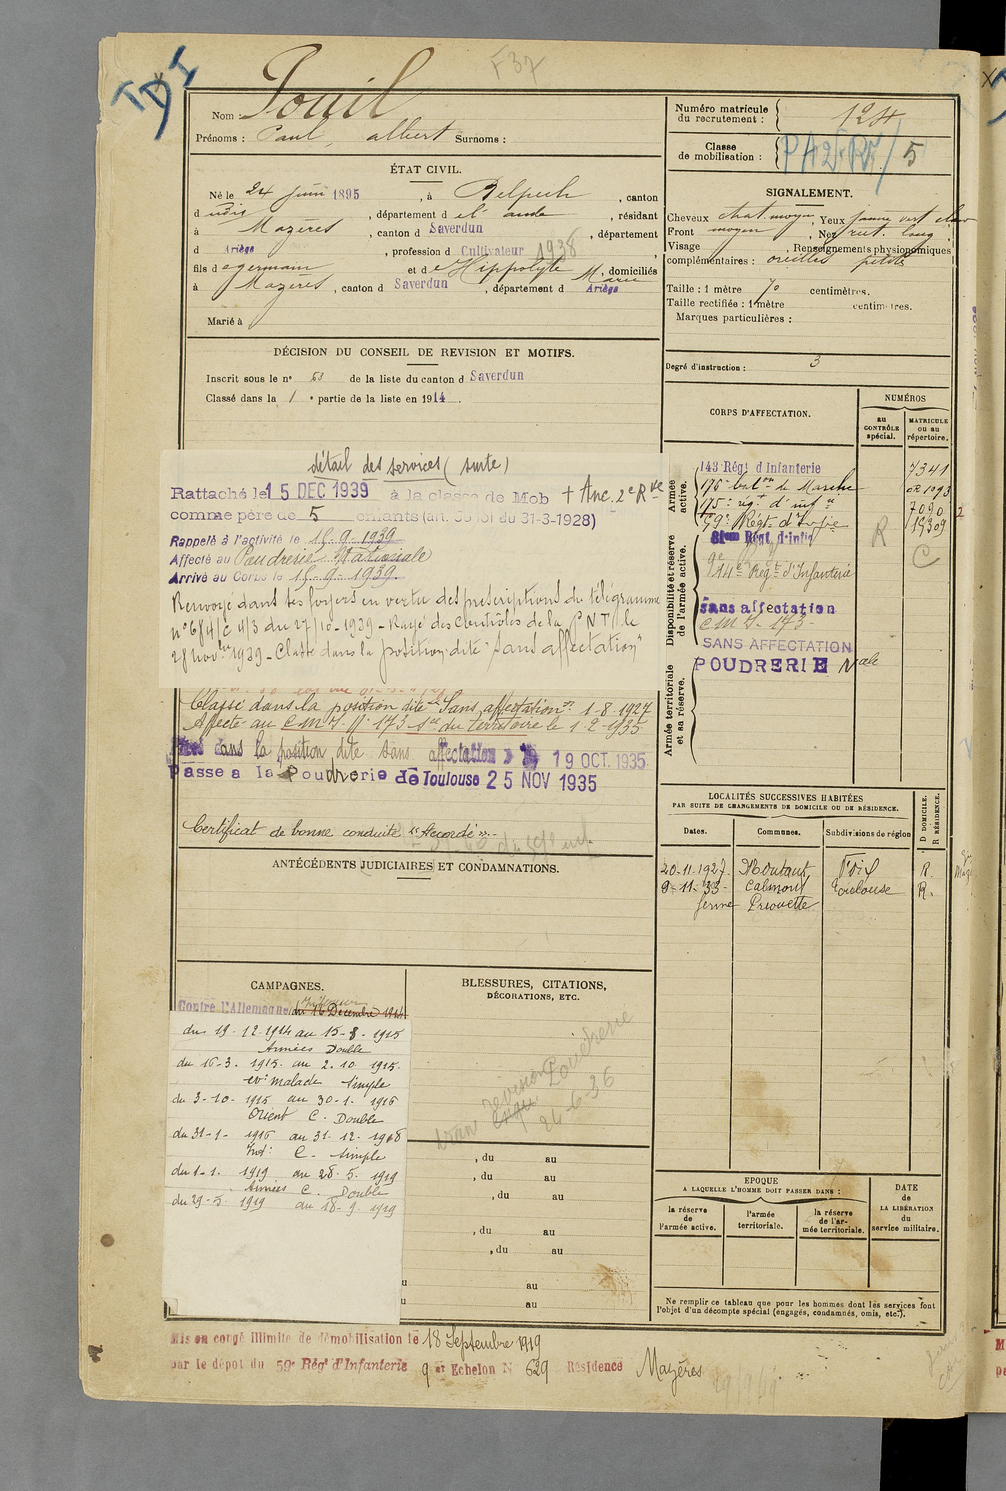 F 37
Nom : Pouil
Prénoms : Paul, albert Surnoms :
Numéro matricule
du recrutement : 124
Classe
de mobilisation : / 5
ÉTAT CIVIL.
Né le 24 juin 1895, à Belpech, canton
d udis, département d el' aude, résidant
à Mazères, canton d Saverdun, département
d Ariège, profession d Cultivateur 1938,
fils d e germain et d e Hippolyte Marie, domiciliés
à Mazères, canton d Saverdun, département d Ariège
Marié à
SIGNALEMENT.
Cheveux chat. moyen, Yeux jaune vert clair
Front moyen, Nez rect. long
Visage , Renseignements physionomiques
complémentaires : oreilles petites
Taille : 1 mètre 70 centimètres.
Taille rectifiée : 1 mètre centimètres.
Marques particulières :
Degré d'instruction : 3
DÉCISION DU CONSEIL DE REVISION ET MOTIFS.
Inscrit sous le n° 53 de la liste du canton d Saverdun
Classé dans la 1 e partie de la liste en 1914.
détail des services (suite)
Rattaché le 15 DEC 1939 à la classe de Mob + Anc. 2e Rve
comme père de 5 enfants (art. 58 ) du 31-3-1928)
Rappelé à l'activité le 15-9-1939
Affecté au Poudrerie Nationale
Arrivé au Corps le 15-9-1939
Renvoyé dans ses foyers en vertu des prescriptions du télégramme
n° 684/C 4/3 du 27/10-1939 - Rayé des Contrôles de la P N T/ le
28 novbre 1939 - Classé dans la position dite "Sans affectation"
Classé dans la position dite "Sans affectation" 1-8-1927
Affecté au C M I. N° 173 du territoire le 1-2-1935
dans la position dite sans affectation le 19 OCT. 1935
Passé à la Poudrerie de Toulouse 25 NOV 1935
Certificat de bonne conduite "Accordé"
CORPS D'AFFECTATION.
NUMÉROS
au CONTRÔLE spécial.
MATRICULE ou au répertoire.
Armée active.
143 Régt d'Infanterie 7341
176e baton de Marche 1093
175e rgt d'infie 7090
59e Régt d'Infie 19309
R
C
Disponibilité et réserve de l'armée active.
81em Régt d'infie
14e Régt d'Infanterie
Sans affectation
C M I - 173 -
SANS AFFECTATION
POUDRERIE Nale
Armée territoriale et sa réserve.
LOCALITÉS SUCCESSIVES HABITÉES
PAR SUITE DE CHANGEMENTS DE DOMICILE OU DE RÉSIDENCE.
Dates. Communes. Subdivisions de région D DOMICILE. R RÉSIDENCE.
20-11-1927 Montaut Foix R.
9-11-33 Calmont Toulouse R.
ferme Priouette
ANTÉCÉDENTS JUDICIAIRES ET CONDAMNATIONS.
CAMPAGNES.
Contre l'Allemagne du 16 Décembre 1914
Intérieur
du 19-12-1914 au 15-8-1915
Armées Double
du 16-3. 1915 au 2.10 1915.
évé malade Simple
du 3-10-1915 au 30-1-1916
Orient C. Double
du 31-1-1916 au 31.12.1918
Int: C - simple
du 1-1. 1919 au 28.5.1919
Armées C. Double
du 29-5 1919 au 18-9-1919
BLESSURES, CITATIONS,
DÉCORATIONS, ETC.
revenant Poudrerie
26-6-36
, du au
, du au
, du au
, du au
, du au
u au
u au
EPOQUE
A LAQUELLE L'HOMME DOIT PASSER DANS :
la réserve de l'armée active.
l'armée territoriale.
la réserve de l'armée territoriale.
DATE de LA LIBÉRATION du service militaire.
Ne remplir ce tableau que pour les hommes dont les services font
l'objet d'un décompte spécial (engagés, condamnés, omis, etc.).
Mis en congé illimité de démobilisation le 18 Septembre 1919
par le dépôt du 59e Régt d'Infanterie 9e Echelon N° 629 Résidence Mazères